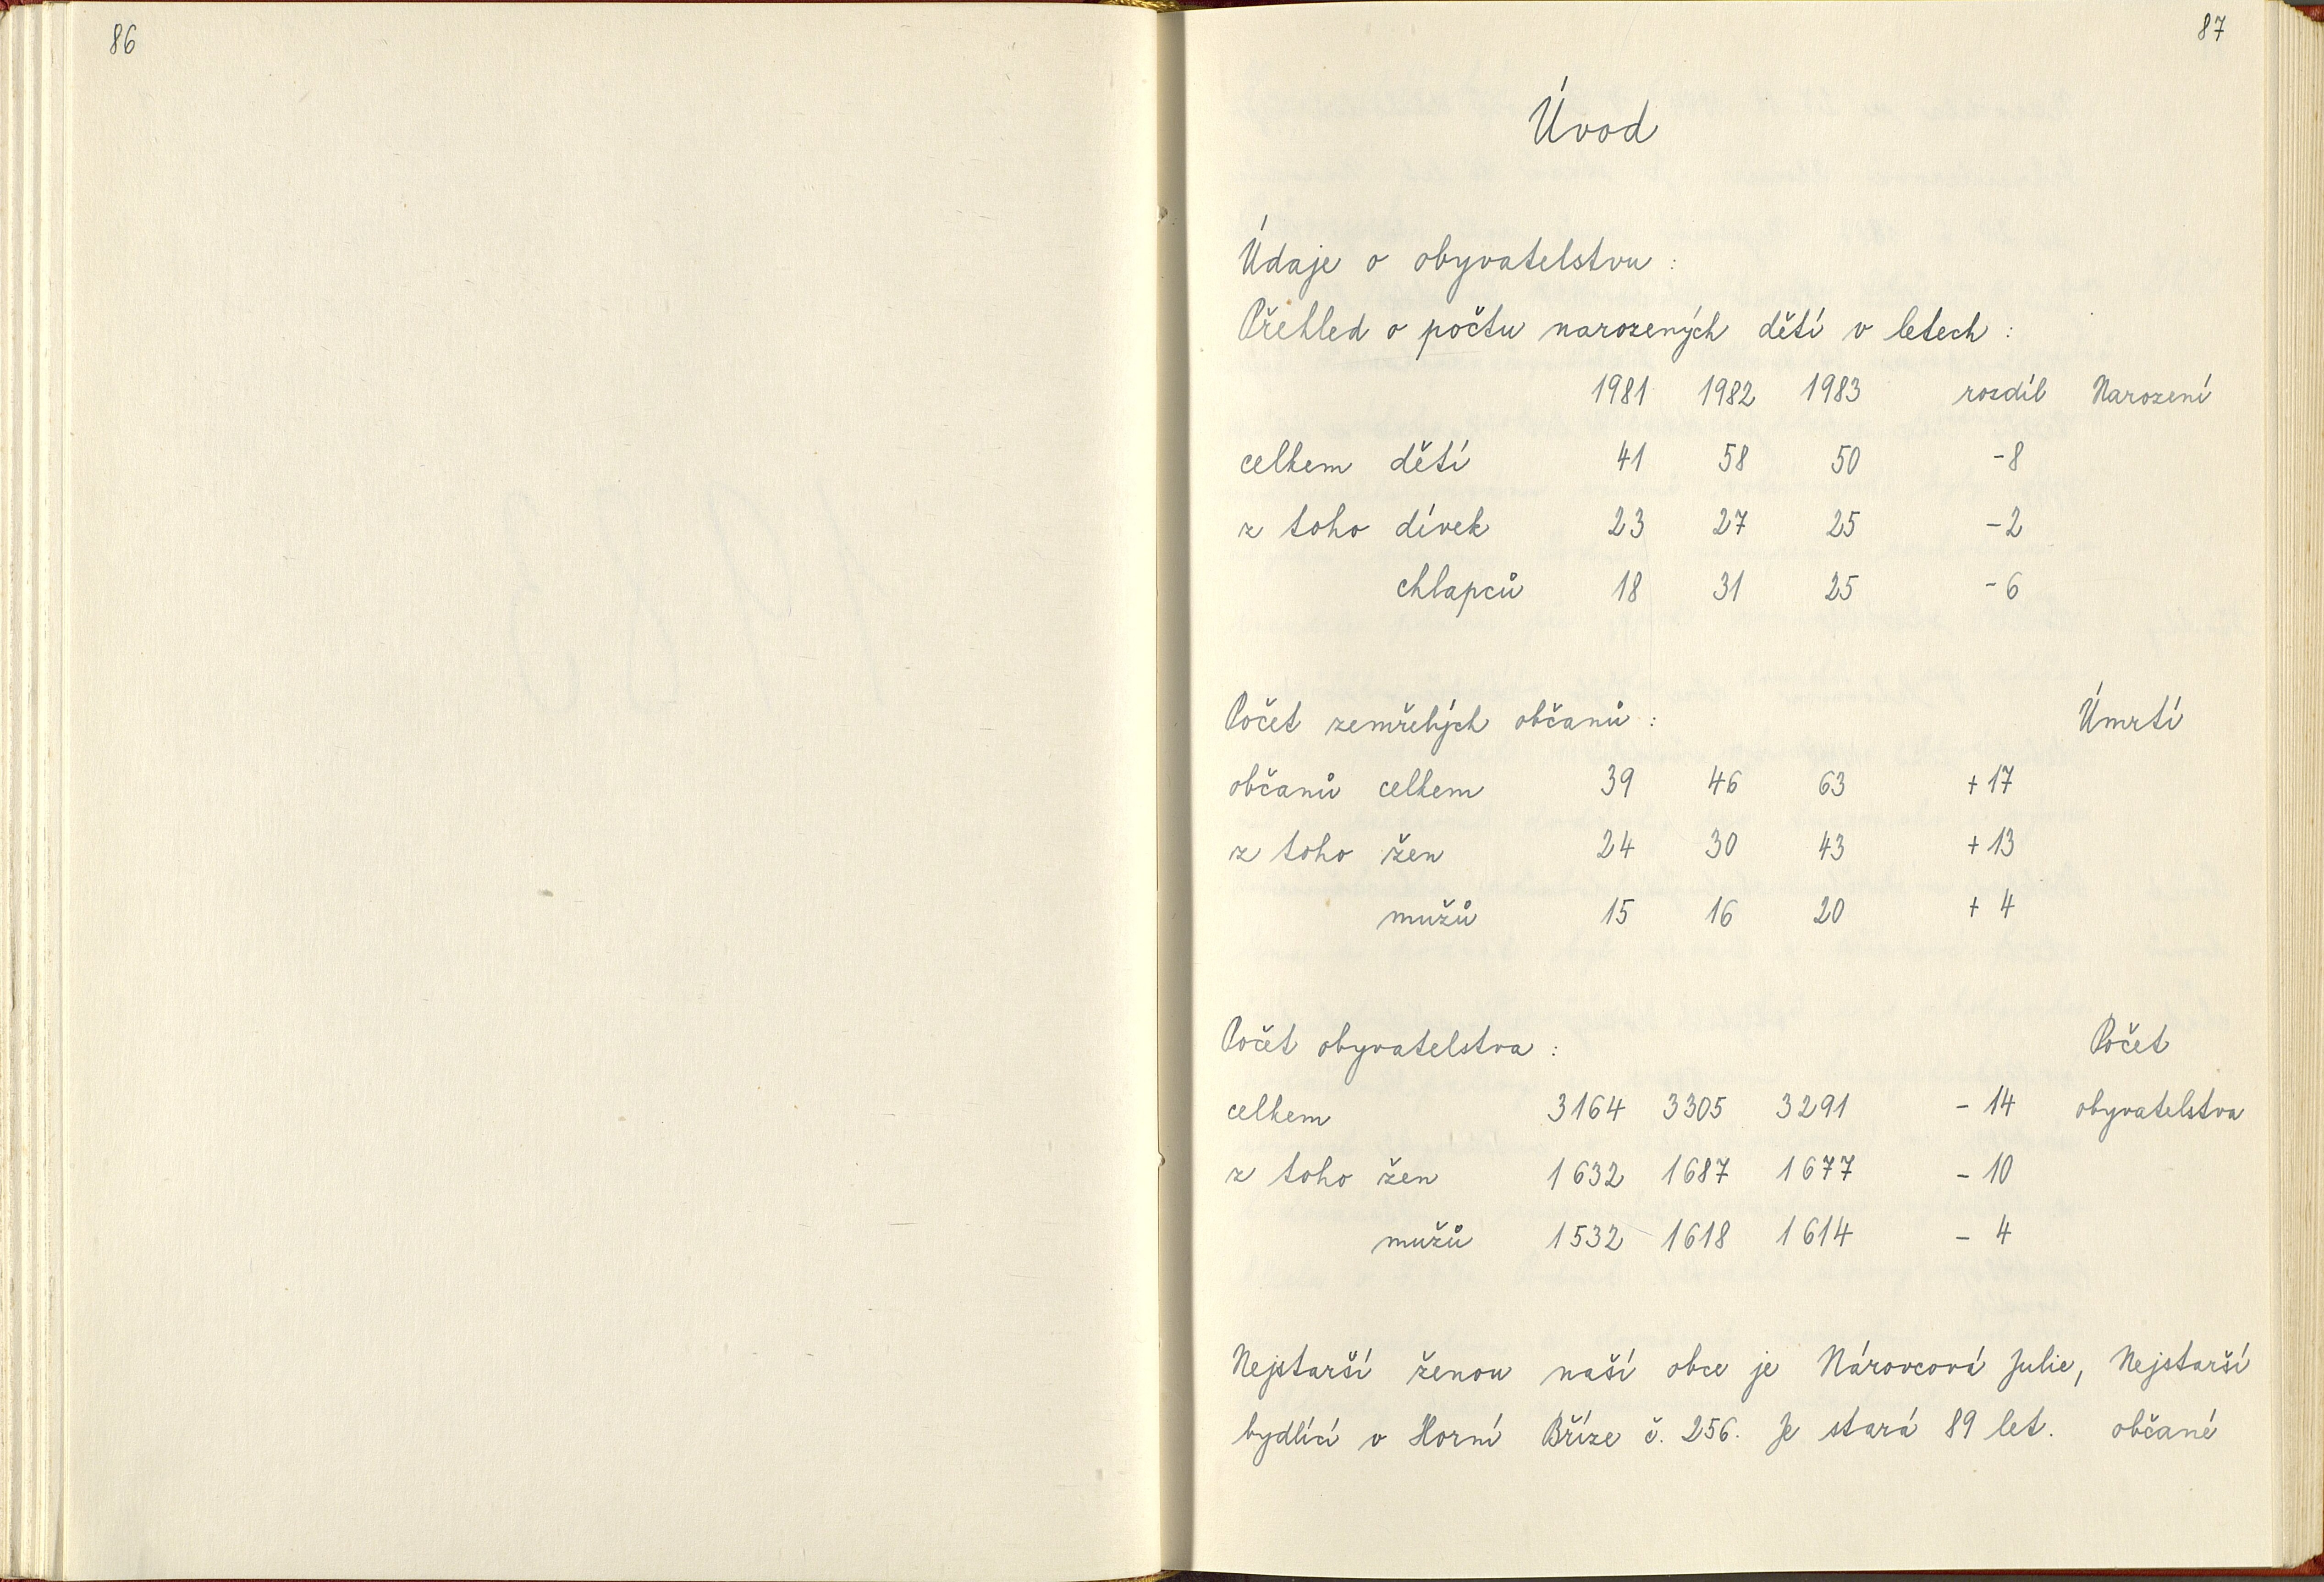 86
87
Úvod
Údaje o obyvatelstvu :
Přehled o počtu narozených dětí v letech :
1981 1982 1983 rozdíl Narození
celkem dětí 41 58 50 -8
z toho dívek 23 27 25 -2
chlapců 18 31 25 -6
Počet zemřelých občanů : Úmrtí
občanů celkem 39 46 63 +17
z toho žen 24 30 43 +13
mužů 15 16 20 + 4
Počet obyvatelstva : Počet
celkem 3164 3305 3291 - 14 obyvatelstva
z toho žen 1632 1687 1677 - 10
mužů 1532 1618 1614 - 4
Nejstarší ženou naší obce je Nárovcová Julie, Nejstarší
bydlící v Horní Bříze č. 256. Je stará 89 let. občané